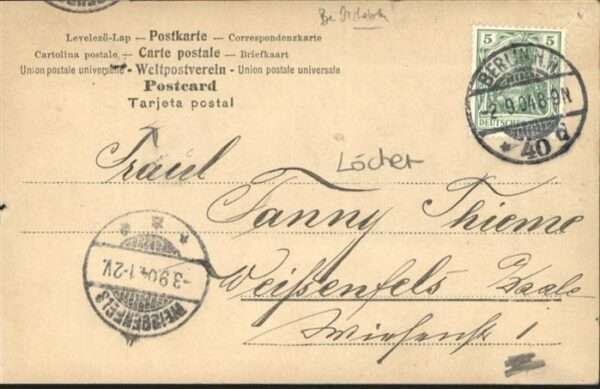 Levelező-Lap — Postkarte — Correspondenzkarte
Cartolina postale — Carte postale — Briefkaart
Union postale universelle - Weltpostverein - Union postale universale
Postcard
Tarjeta postal
5 5
DEUTSCHES
BERLIN N.W.
2.9.04.8-9N
* 40 d
Löcher
Fräul
Fanny Thieme
Weißenfels Saale
Wiesenstr 1
WEISSENFELS
-3.9.04.1-2V.
* 2 *